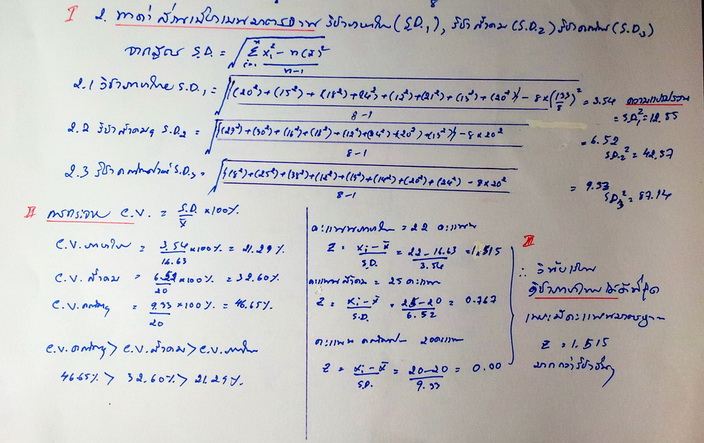 I 2. หาค่า ส่วนเบี่ยงเบนมาตรฐาน วิชาภาษาไทย (S.D.₁), วิชาสังคม (S.D.₂) วิชาคณิตฯ (S.D.₃)
จากสูตร S.D. = √ Σ xᵢ² - n(x̄)²
i=1
n-1
2.1 วิชาภาษาไทย S.D.₁ = √ (20²)+(15²)+(18²)+(24²)+(12²)+(21²)+(13²)+(20²) - 8×(133/8)² = 3.54 ความแปรปรวน
8-1
= S.D.₁² = 12.55
2.2 วิชาสังคมฯ S.D.₂ = √ - 8×20²
8-1
= 6.52
S.D.₂² = 42.57
2.3 วิชาคณิตศาสตร์ S.D.₃ = √ (8²)+(25²)+(38²)+(12²)+(15²)+(14²)+(20²)+(24²) - 8×20²
8-1
= 9.33
S.D.₃² = 87.14
II การกระจาย C.V. = S.D./x̄ ×100%
C.V. ภาษาไทย = 3.54/16.63 ×100% = 21.29%.
C.V. สังคม = 6.52/20 ×100% = 32.60%.
C.V. คณิตฯ = 9.33/20 ×100% = 46.65%.
C.V. คณิตฯ > C.V. สังคม > C.V. ภาษาไทย
46.65% > 32.60% > 21.29%.
คะแนนภาษาไทย = 22 คะแนน
Z = xᵢ-x̄/S.D. = 22-16.63/3.54 = 1.515
คะแนนสังคม = 25 คะแนน
Z = xᵢ-x̄/S.D. = 25-20/6.52 = 0.767
คะแนน คณิตฯ = 20 คะแนน
Z = xᵢ-x̄/S.D. = 20-20/9.33 = 0.00
III
∴
วิชาภาษาไทย ได้ดีที่สุด
เพราะมีคะแนนมาตรฐาน
Z = 1.515
มากกว่าวิชาอื่นๆ